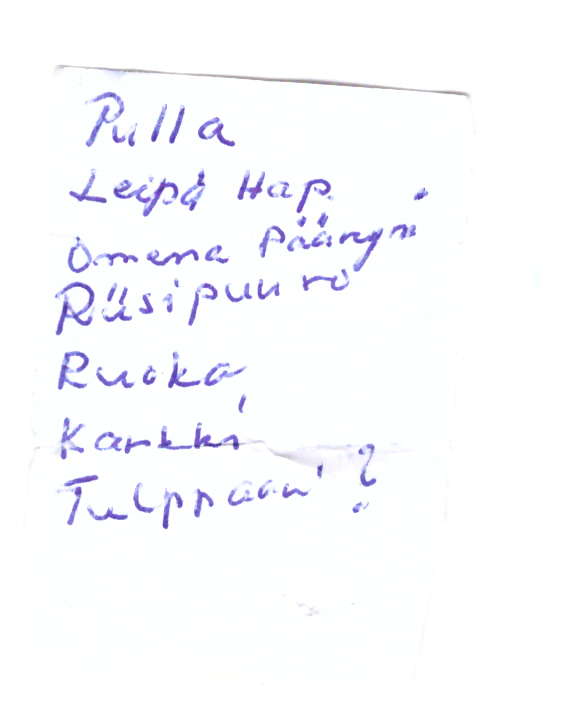 Pulla
Leipä Hap.
Omena Päärynä
Riisipuuro
Ruoka
Karkki
Tulppaani?